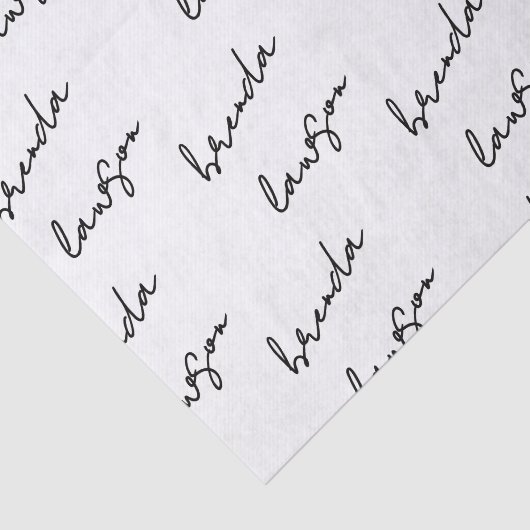 brenda
lawson
brenda
lawson
brenda
lawson
brenda
lawson
nda
wson